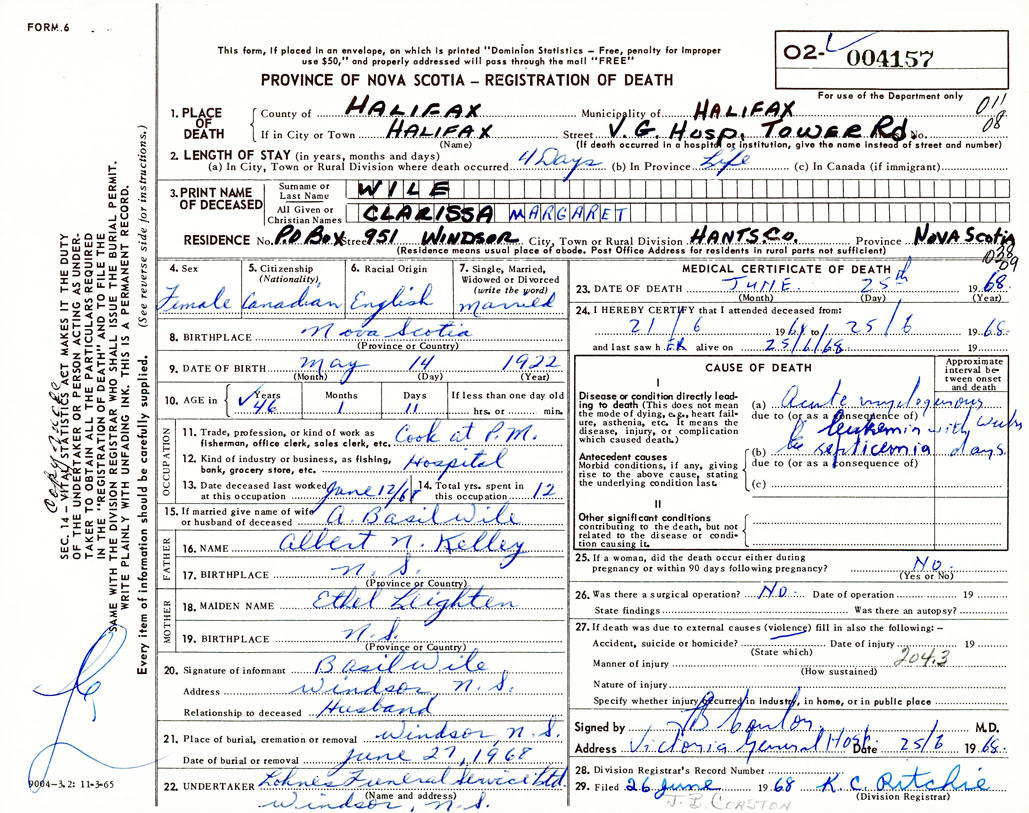 FORM.6
This form, if placed in an envelope, on which is printed "Dominion Statistics – Free, penalty for improper
use $50," and properly addressed will pass through the mail "FREE"
PROVINCE OF NOVA SCOTIA – REGISTRATION OF DEATH
O2- 004157
For use of the Department only
011
08
1. PLACE OF DEATH
County of HALIFAX Municipality of HALIFAX
If in City or Town HALIFAX Street V.G. Hosp. TOWER Rd. No.
(Name) (If death occurred in a hospital or institution, give the name instead of street and number)
2. LENGTH OF STAY (in years, months and days)
(a) In City, Town or Rural Division where death occurred 4 Days (b) In Province Life (c) In Canada (if immigrant)
3. PRINT NAME OF DECEASED
Surname or Last Name WILE
All Given or Christian Names CLARISSA MARGARET
RESIDENCE No. P.O Box Street 951 WINDSOR City, Town or Rural Division HANTS Co. Province NOVA Scotia
(Residence means usual place of abode. Post Office Address for residents in rural parts not sufficient)
038
09
4. Sex Female
5. Citizenship (Nationality) Canadian
6. Racial Origin English
7. Single, Married, Widowed or Divorced (write the word) Married
8. BIRTHPLACE Nova Scotia
(Province or Country)
9. DATE OF BIRTH May 14 1922
(Month) (Day) (Year)
10. AGE in Years 46 Months 1 Days 11 If less than one day old hrs. or min.
OCCUPATION
11. Trade, profession, or kind of work as fisherman, office clerk, sales clerk, etc. Cook at P.M.
12. Kind of industry or business, as fishing, bank, grocery store, etc. Hospital
13. Date deceased last worked at this occupation June 12/68
14. Total yrs. spent in this occupation 12
15. If married give name of wife or husband of deceased A. Basil Wile
FATHER
16. NAME Albert N. Kelley
17. BIRTHPLACE N.S.
(Province or Country)
MOTHER
18. MAIDEN NAME Ethel Leighten
19. BIRTHPLACE N.S.
(Province or Country)
20. Signature of informant Basil Wile
Address Windsor, N.S.
Relationship to deceased Husband
21. Place of burial, cremation or removal Windsor, N.S.
Date of burial or removal June 27, 1968
22. UNDERTAKER Lohnes Funeral Service Ltd.
(Name and address)
Windsor, N.S.
MEDICAL CERTIFICATE OF DEATH
23. DATE OF DEATH JUNE 25th 1968.
(Month) (Day) (Year)
24. I HEREBY CERTIFY that I attended deceased from:
21/6 1968 to 25/6 1968.
and last saw h ER alive on 25/6/68 19
CAUSE OF DEATH
Approximate interval between onset and death
I
Disease or condition directly leading to death (This does not mean the mode of dying, e.g., heart failure, asthenia, etc. It means the disease, injury, or complication which caused death.)
(a) Acute myelogenous
due to (or as a consequence of)
leukemia with
(b) septicemia days.
due to (or as a consequence of)
(c)
Antecedent causes
Morbid conditions, if any, giving rise to the above cause, stating the underlying condition last.
II
Other significant conditions
contributing to the death, but not related to the disease or condition causing it.
25. If a woman, did the death occur either during
pregnancy or within 90 days following pregnancy? NO.
(Yes or No)
26. Was there a surgical operation? NO. Date of operation 19
State findings Was there an autopsy?
27. If death was due to external causes (violence) fill in also the following: –
Accident, suicide or homicide? Date of injury 19
(State which) 204.3
Manner of injury
(How sustained)
Nature of injury
Specify whether injury occurred in Industry, in home, or in public place
Signed by M.D.
Address Victoria General Hosp. Date 25/6 1968.
28. Division Registrar's Record Number
29. Filed 26 June 1968 K. C. Ritchie
(Division Registrar)
J. B. COASTON
SEC. 14 – VITAL STATISTICS ACT MAKES IT THE DUTY
OF THE UNDERTAKER OR PERSON ACTING AS UNDER-
TAKER TO OBTAIN ALL THE PARTICULARS REQUIRED
IN THE "REGISTRATION OF DEATH" AND TO FILE THE
SAME WITH THE DIVISION REGISTRAR WHO SHALL ISSUE THE BURIAL PERMIT.
WRITE PLAINLY WITH UNFADING INK. THIS IS A PERMANENT RECORD.
Every item of information should be carefully supplied. (See reverse side for instructions.)
9004-3.2: 11-3-65